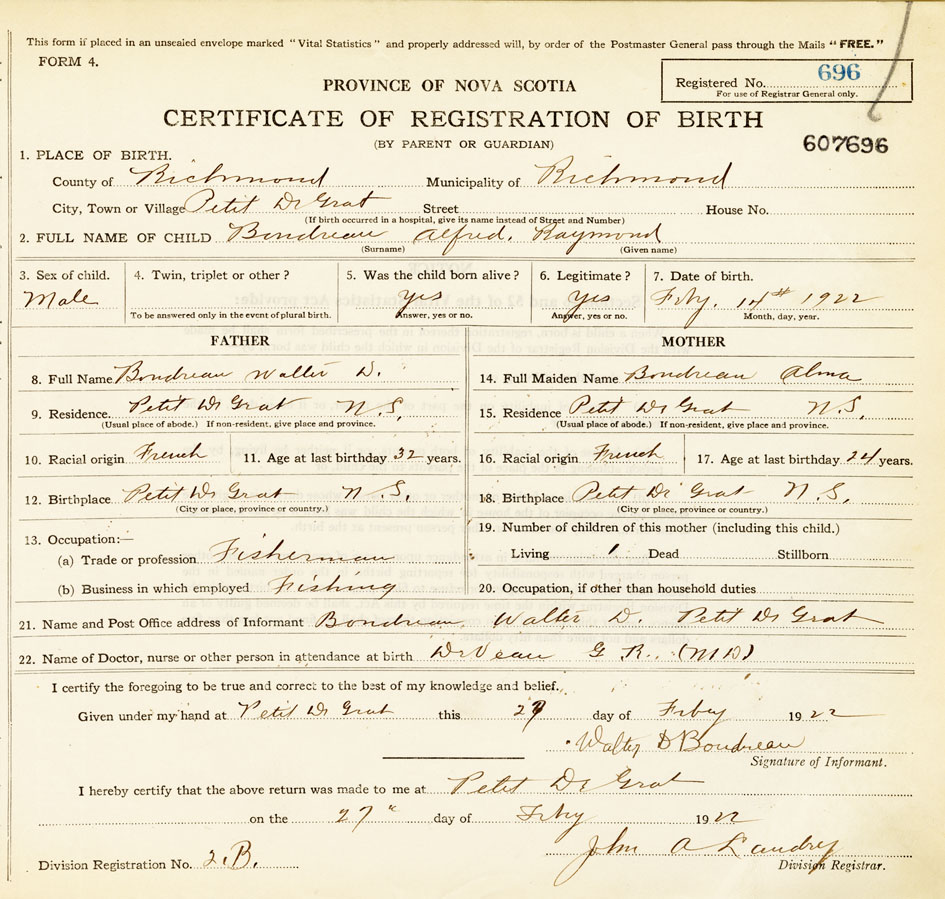 This form if placed in an unsealed envelope marked "Vital Statistics" and properly addressed will, by order of the Postmaster General pass through the Mails "FREE."
FORM 4.
Registered No. 696
For use of Registrar General only.
PROVINCE OF NOVA SCOTIA
CERTIFICATE OF REGISTRATION OF BIRTH
(BY PARENT OR GUARDIAN)
607696
1. PLACE OF BIRTH.
County of Richmond Municipality of Richmond
City, Town or Village Petit De Grat Street House No.
(If birth occurred in a hospital, give its name instead of Street and Number)
2. FULL NAME OF CHILD Boudreau Alfred. Raymond
(Surname) (Given name)
3. Sex of child. 4. Twin, triplet or other? 5. Was the child born alive? 6. Legitimate? 7. Date of birth.
Male yes yes Feby. 14th 1922
To be answered only in the event of plural birth. Answer, yes or no. Answer, yes or no. Month, day, year.
FATHER MOTHER
8. Full Name Boudreau Walter D. 14. Full Maiden Name Boudreau Alma
9. Residence. Petit De Grat N.S. 15. Residence Petit De Grat N.S.
(Usual place of abode.) If non-resident, give place and province. (Usual place of abode.) If non-resident, give place and province.
10. Racial origin French 11. Age at last birthday 32 years. 16. Racial origin French 17. Age at last birthday 24 years.
12. Birthplace Petit De Grat N.S. 18. Birthplace Petit De Grat N.S.
(City or place, province or country.) (City or place, province or country.)
13. Occupation:— 19. Number of children of this mother (including this child.)
(a) Trade or profession Fisherman Living 1 Dead Stillborn
(b) Business in which employed Fishing 20. Occupation, if other than household duties
21. Name and Post Office address of Informant Boudreau, Walter D. Petit De Grat
22. Name of Doctor, nurse or other person in attendance at birth DeVeau G R.. (MD)
I certify the foregoing to be true and correct to the best of my knowledge and belief.
Given under my hand at Petit De Grat this day of Feby 1922
Walter D Boudreau
Signature of Informant.
I hereby certify that the above return was made to me at Petit De Grat
on the 27" day of Feby 1922
John A Landry
Division Registration No. 2.B. Division Registrar.